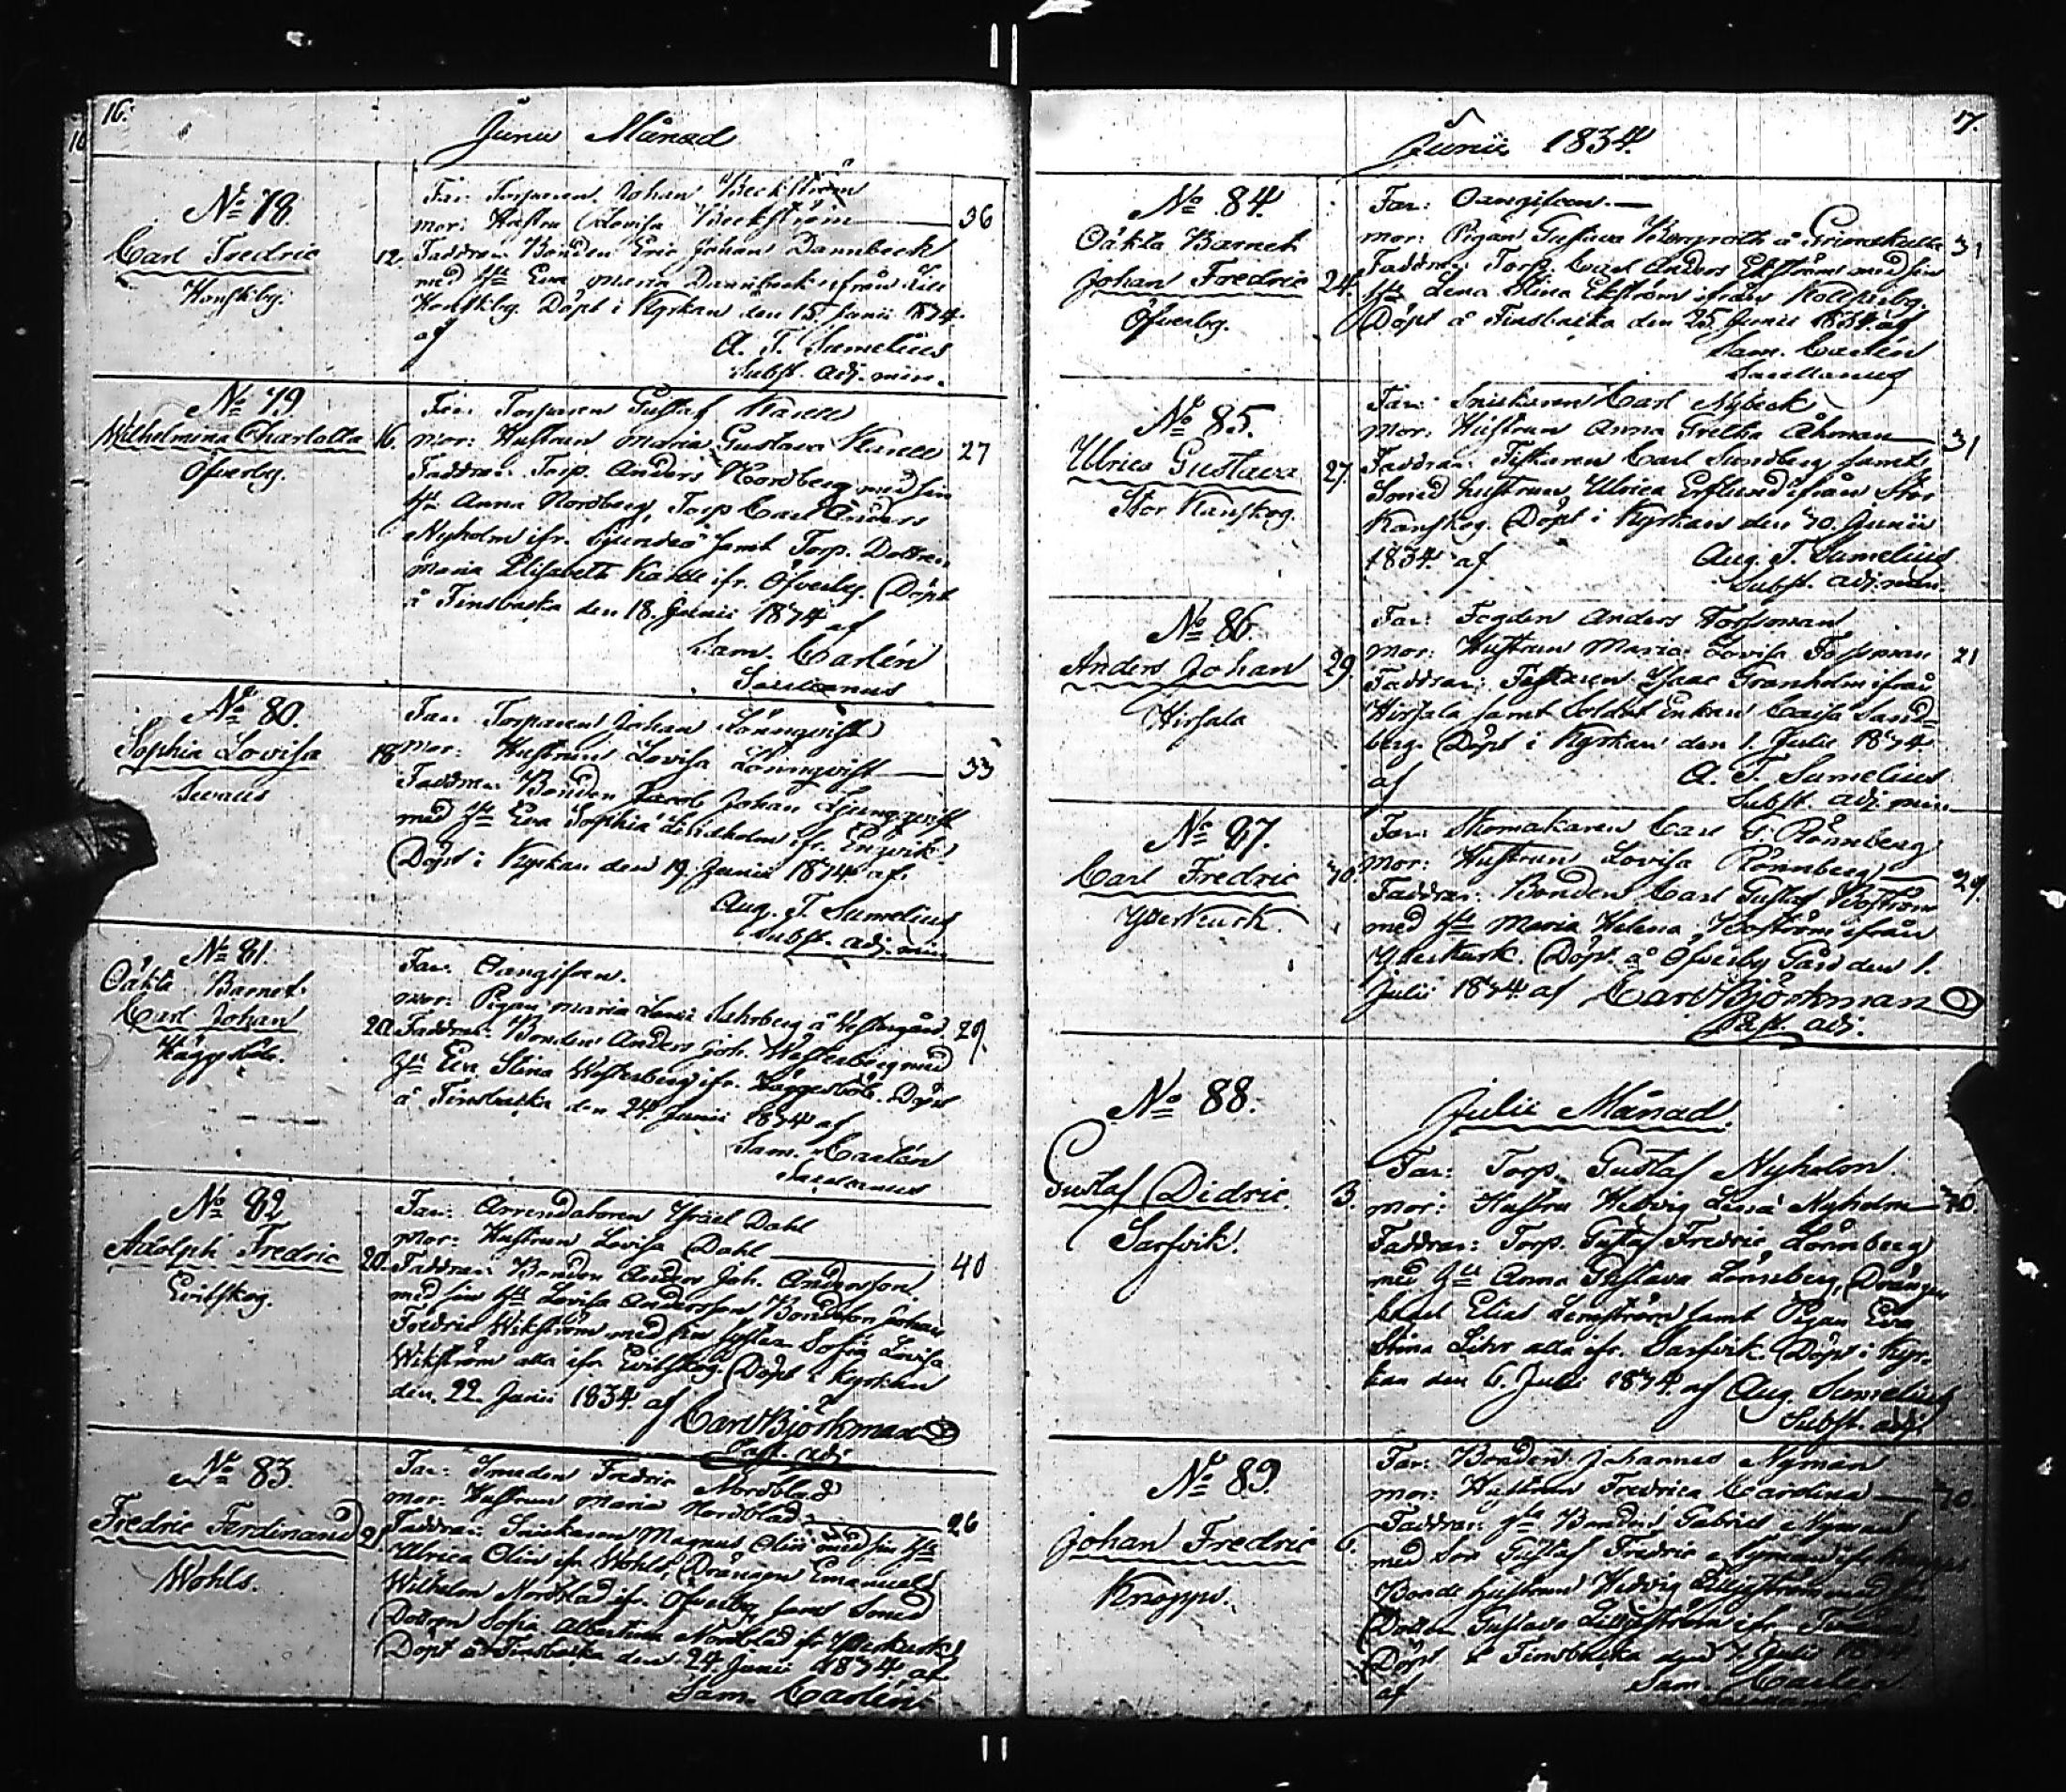 16.
Junii Månad
No 78.
Carl Fredric
12.
Far: Torparen Johan Beckström
mor: Hustru Lovisa Beckström 36
Faddrar: Bonden Eric Johan Dannbeck
med Hst Eva Maria Dannbeck ifrån
Döpt i Kyrkan den 15. Junii 1834.
af
A. T. Sumelius
Subst. adj. min.
No 79
Wilhelmina Charlotta
Öfverby.
16.
Far: Torparen Gustaf
mor: Hustrun Maria Gustava 27
Faddrar: Torp. Anders Nordberg med sin
Hst Anna Nordberg, Torp Carl Anders
Nyholm ifr. Sjundeå samt Torp. Dottren
Maria Elisabeth ifr. Öfverby. Döpt
å Finsbacka den 18. Junii 1834 af
Sam. Carlén
Sacellanus
No 80.
Sophia Lovisa
18.
Far: Torparen Johan Lönnqvist
mor: Hustrun Lovisa Lönnqvist 33
Faddrar: Bonden Jacob Johan Ljungqvist
med Hst Eva Sophia Lindholm ifr. Engvik.
Döpt i Kyrkan den 19. Junii 1834. af
Aug. T. Sumelius
Subst. adj. min
No 81.
Oäkta Barnet
Carl Johan
Häggesböle.
20.
Far: Oangifven.
mor: Pigan Maria å 29.
Faddrar: Bonden Anders Joh. Westerberg med
Hst Eva Stina Westerberg ifr. Häggesböle. Döpt
å Finsbacka den 24. Junii 1834 af
Sam. Carlén
Sacellanus
No 82
Adolph Fredric
Evitskog.
20.
Far: Arrendatoren Israel Dahl
mor: Hustrun Lovisa Dahl 40
Faddrar: Bonden Anders Joh. Andersson
med sin Hst Lovisa Andersson Bondeson Johan
Fredric Wikström med sin syster Sofia Lovisa
Wikström alla ifr. Evitskog. Döpt i Kyrkan
den 22. Junii 1834. af
Carl Björkman
Past. adj.
No 83.
Fredric Ferdinand
Wohls.
21
Far: Smeden Fredric Nordblad
mor: Hustrun Maria Nordblad 26
Faddrar: Snickaren Magnus Olin med sin Hst
Ulrica Olin ifr. Wohls, Drängen Emanuel
Wilhelm Nordblad ifr. Öfverby samt Smed
Dottren Sofia Albertina Nordblad ifr Ytterkurk
Döpt å Finsbacka den 24. Junii 1834. af
Sam. Carlén
17.
Junii 1834.
No 84.
Oäkta Barnet
Johan Fredric
Öfverby.
24.
Far: Oangifven.
mor: Pigan Gustava å 31
Faddrar: Torp. Carl Anders Ekström med sin
Hst Lena Stina Ekström ifrån
Döpt å Finsbacka den 25. Junii 1834. af
Sam. Carlén
Sacellanus
No 85.
Ulrica Gustava
Stor Kanskog.
27.
Far: Snickaren Carl Nybeck
mor: Hustrun Anna Gretha Åhman 31
Faddrar: Fiskaren Carl Sundberg samt
Smed hustrun Ulrica ifrån Stor
Kanskog. Döpt i Kyrkan den 30. Junii
1834. af
Aug. T. Sumelius
Subst. adj. min.
No 86.
Anders Johan
Hirsala
29.
Far: Fogden Anders Forsman
mor: Hustrun Maria Lovisa Forsman 21
Faddrar: Fiskaren Isaac Granholm ifrån
Hirsala samt Soldat Enkan Caisa Sand-
berg. Döpt i Kyrkan den 1. Julii 1834
af
A. T. Sumelius
Subst. adj. min.
No 87.
Carl Fredric
Ytterkurk.
30.
Far: Skomakaren Carl G. Rönnberg
mor: Hustrun Lovisa Rönnberg 29.
Faddrar: Bonden Carl Gustaf Boström
med Hst Maria Helena Boström ifrån
Ytterkurk. Döpt å Öfverby Gård den 1.
Julii 1834. af Carl Björkman
Past. adj.
No 88.
Julii Månad.
Gustaf Didric
Sarfvik.
3.
Far: Torp. Gustaf Nyholm.
mor: Hustru Hedvig Lovisa Nyholm 30.
Faddrar: Torp. Gustaf Fredric Lönnberg
med Hst Anna Gustava Lönnberg, Drängen
Elias samt Pigan Eva
Stina alla ifr. Sarfvik. Döpt i Kyr-
kan den 6. Julii 1834. af Aug. Sumelius
Subst. adj.
No 89.
Johan Fredric
Knapps.
6.
Far: Bonden Johannes Nyman
mor: Hustrun Fredrica Carolina 30.
Faddrar: Bonden Gabriel Nyman
med Gustaf Fredric Nyman
Bonde hustrun Hedvig
Dotter Gustava
Döpt å Finsbacka den 7. Julii 1834
af
Sam. Carlén